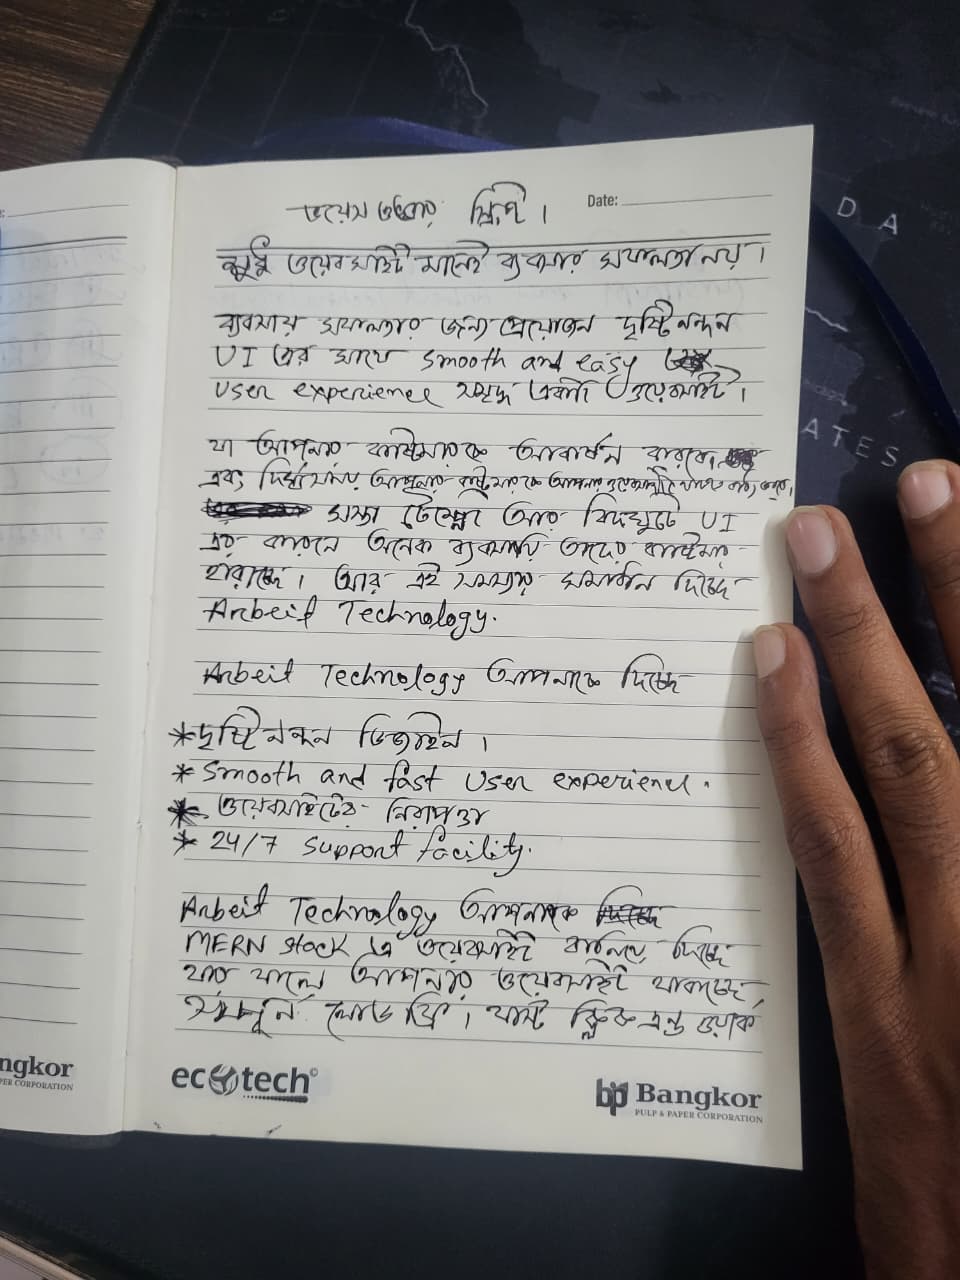 Date:
ভয়েস ওভার স্ক্রিপ্ট।
শুধু ওয়েবসাইট মানেই ব্যবসার সফলতা নয়।
ব্যবসায় সফলতার জন্য প্রয়োজন দৃষ্টিনন্দন
UI এর সাথে smooth and easy
User experience সমৃদ্ধ একটি ওয়েবসাইট।
যা আপনার কাষ্টমারকে আকর্ষন করবে,
এবং দির্ঘসময় আপনার কাষ্টমারকে আপনার ওয়েবসাইটে থাকতে বাধ্য করবে।
সস্তা টেমপ্লেট আর বিদঘুটে UI
এর কারনে অনেক ব্যবসায়ি তাদের কাষ্টমার
হারাচ্ছে। আর এই সমস্যার সমাধান দিচ্ছে
Arbeit Technology.
Arbeit Technology আপনাকে দিচ্ছে
* দৃষ্টিনন্দন ডিজাইন।
* Smooth and fast User experience.
* ওয়েবসাইটের নিরাপত্তা
* 24/7 Support facility.
Arbeit Technology আপনাকে
MERN stack এ ওয়েবসাইট বানিয়ে দিচ্ছে
যার ফলে আপনার ওয়েবসাইট থাকছে
সম্পূর্ন লোড ফ্রি। যাস্ট ক্লিক এন্ড ওয়ার্ক
ecotech
Bangkor
PULP & PAPER CORPORATION
ngkor
PER CORPORATION
D A
ATES